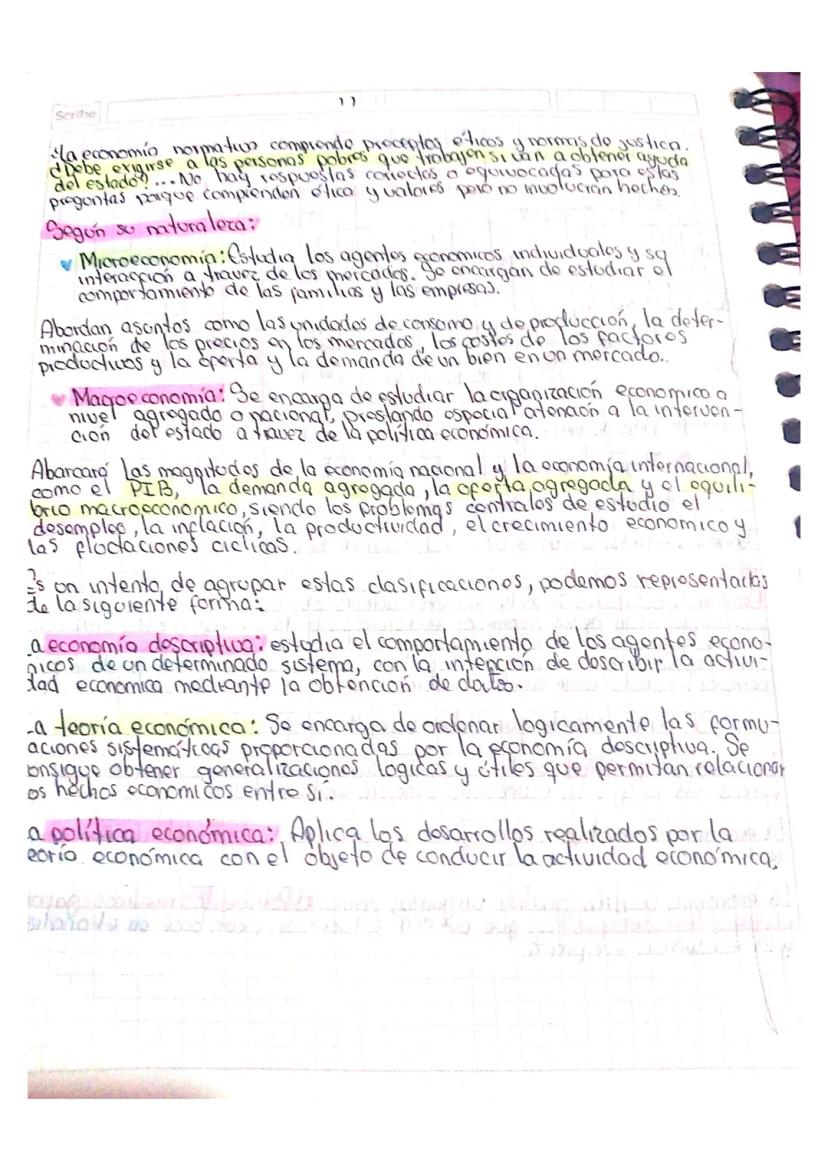 Scribe
"la economía normativa comprende preceptos éticos y normas de justicia.
¿Debe exigirse a las personas pobres que trabajen si van a obtener ayuda
del estado?...No hay respuestas correctas o equivocadas para estas
preguntas porque comprenden ética y valores pero no involucran hechos.
Según su naturaleza:
Microeconomía: Estudia los agentes economicos individuales y su
interacción a travez de los mercados. Se encargan de estudiar el
comportamiento de las familias y las empresas.
Abordan asuntos como las unidades de consumo y de producción, la deter-
minación de los precios en los mercados, los costos de los factores
productivos y la oferta y la demanda de un bien en un mercado.
Macroeconomía: Se encarga de estudiar la organización economico a
nivel agregado o nacional, prestando especial atención a la interven-
ción del estado a travez de la política económica.
Abarcará las magnitudes de la economía nacional y la economía internacional,
como el PIB, la demanda agregada, la oferta agregada y el equili-
brio macroeconomico, siendo los problemas centrales de estudio el
desempleo, la inflación, la productividad, el crecimiento economico y
las fluctaciones ciclicas.
s un intento de agrupar estas clasificaciones, podemos representarlas
de la siguiente forma:
a economía descriptiva: estudia el comportamiento de los agentes econó-
nicos de un determinado sistema, con la intención de describir la activi-
dad economica mediante la obtención de datos.
a teoría económica: Se encarga de ordenar logicamente las formu-
aciones sistemáticas proporcionadas por la economía descriptiva. Se
onsigue obtener generalizaciones logicas y útiles que permitan relacionar
os hechos economicos entre sí.
a política económica: Aplica los desarrollos realizados por la
eoría económica con el objeto de conducir la actividad económica.